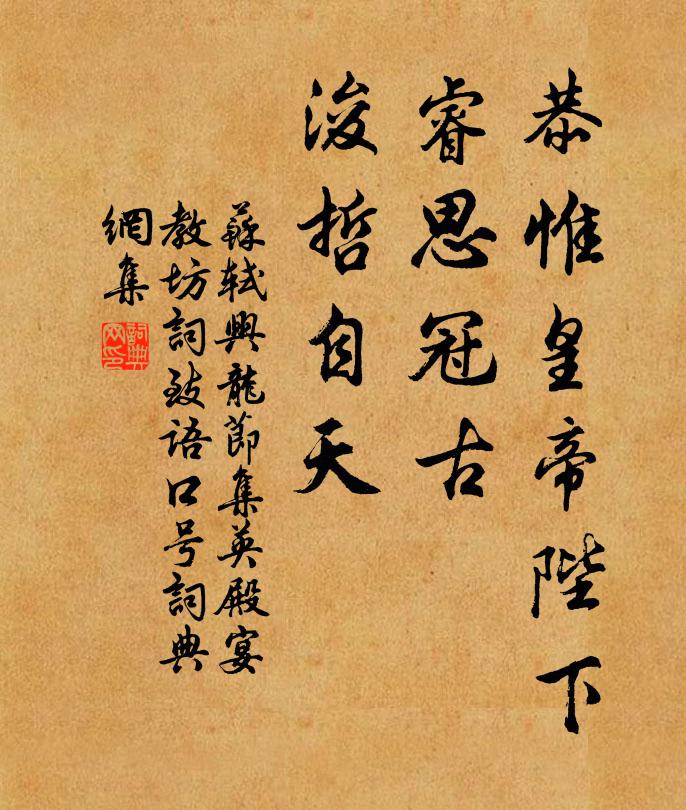 恭惟皇帝陛下
睿思冠古
浚哲自天
蘇軾興龍節集英殿宴
教坊詞致語口号詞典
網集
詞典
网印